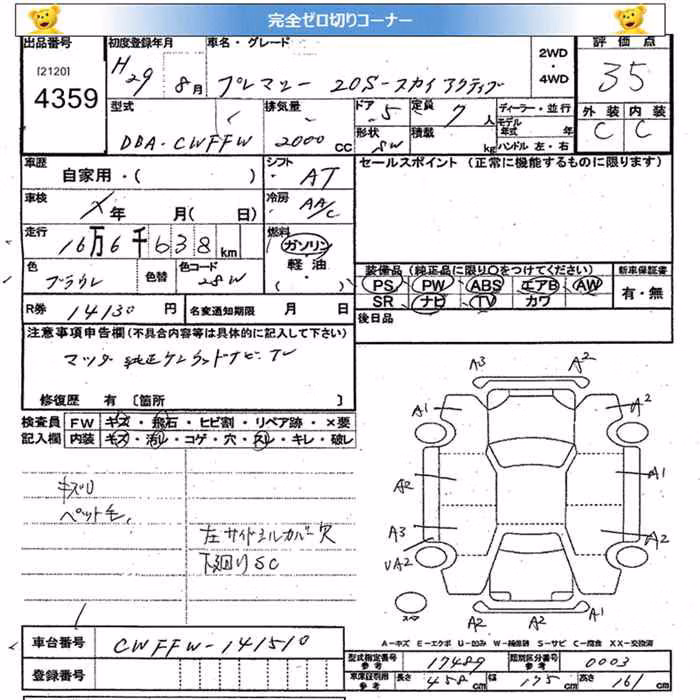 完全ゼロ切りコーナー
出品番号 初度登録年月 車名・グレード 2WD ・4WD 評価点
[2120] 4359 H29 8月 プレマシー 20S-スカイアクティブ 35
型式 排気量 ドア 5 定員 7人 ディーラー・並行 外装 内装
DBA-CWFFW 2000 CC 形状 SW 積載 kg モデル年式 年 ハンドル 左・右 C C
車歴 自家用・( ) シフト AT セールスポイント (正常に機能するものに限ります)
車検 X年 月( 日) 冷房 AA/C
走行 16万6千638km 燃料 ガソリン・軽油・( )
色 色替 色コード 28W 装備品 (純正品に限り○をつけてください) 新車保証書
PS PW ABS エアB AW 有・無
SR ナビ TV カワ
R券 14130円 名変通知期限 月 日 後日品
注意事項申告欄(不具合内容等は具体的に記入して下さい)
マツダ純正ケンウッドナビ・TV
修復歴 有 〔箇所 〕
検査員 FW キズ・飛石・ヒビ割・リペア跡・×要
記入欄 内装 キズ・汚レ・コゲ・穴・スレ・キレ・破レ
キズU
ペット毛
左サイドシルカバー欠
下廻りSC
A3 A2
A1 A2
A2 A1
A3 A2
UA2
A2 A2 A1
スペア
A-キズ E-エクボ U-凹み W-補修跡 S-サビ C-腐食 XX-交換済
車台番号 CWFFW-141510
型式指定番号 参考 17489 類別区分番号 参考 0003
登録番号 車庫証明用 参考 長さ 458cm 幅 175cm 高さ 161cm